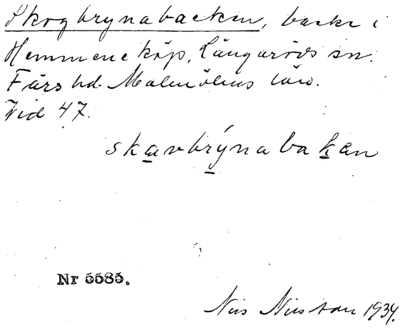 Skogbrynabacken, backe i
Hemmeneköp, Långaröds sn.
Färs hd. Malmöhus län.
Vid 47.
skavbrýnabakan
Nr 5585.
Nils Nilsson 1934.